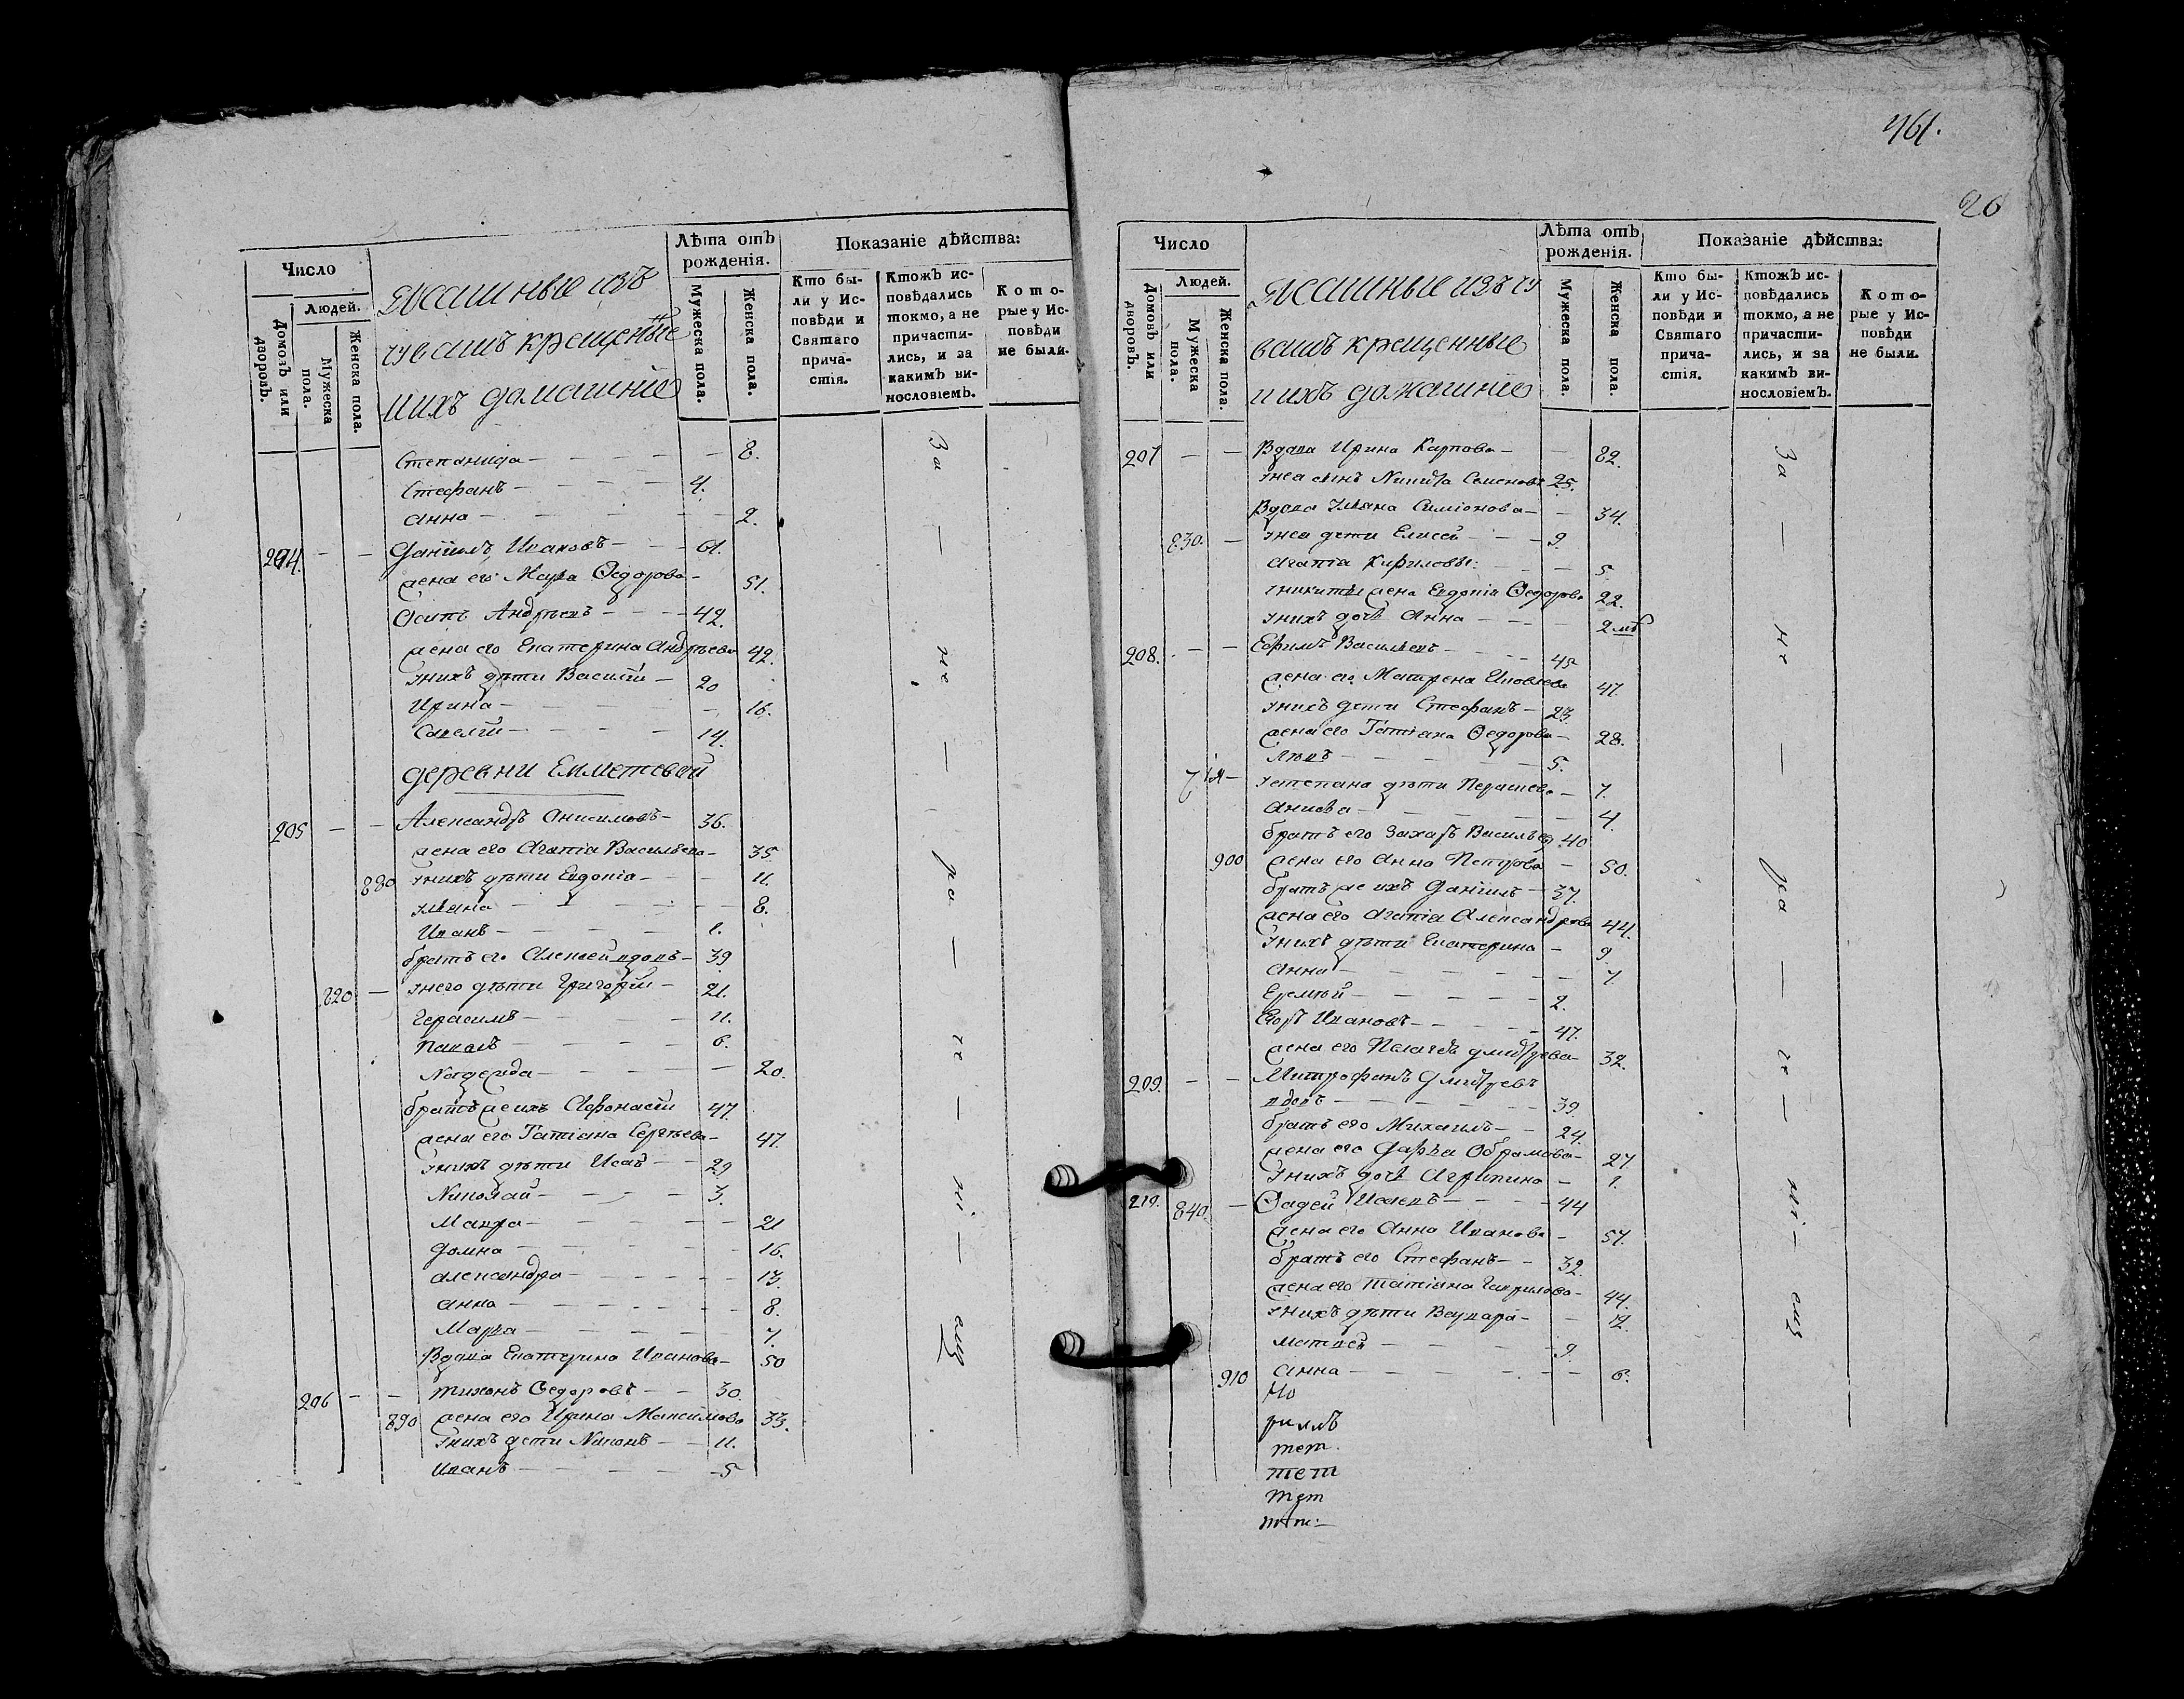 Число
Домовъ или дворовъ.
Людей.
Мужеска пола.
Женска пола.
Ясашные изъ
чувашъ крещенные
и ихъ домашніе
Лѣта отъ рожденія.
Мужеска пола.
Женска пола.
Показаніе дѣйства:
Кто бы-
ли у Ис-
повѣди и
Святаго
прича-
стія.
Ктожъ ис-
повѣдались
токмо, а не
причасти-
лись, и за
какимъ ви-
нословіемъ.
Кото-
рые у Ис-
повѣди
не были.
Степанида — 8.
Стефанъ — 4.
Анна — 2.
204. — — Даніилъ Ивановъ — 61.
жена его Марѳа Ѳедорова — 51.
Осипъ Андреевъ — 42.
жена его Екатерина Андреева 42.
у нихъ дѣти Василій — 20
Ирина — 16.
Савелій — 14.
деревни
205 — — Александръ Анисимовъ — 36.
жена его Агапіа Васильева — 35.
880 у нихъ дѣти Евдокіа — 11.
Ульяна — 8.
Иванъ — 1.
братъ его Алексей вдовъ — 39
820 — у него дѣти Григорій — 21.
Герасимъ — 11.
Павелъ — 6.
Надежда — 20.
братъ же ихъ Афонасей 47.
жена его Татіана Сергѣева — 47.
у нихъ дѣти Исай — 29
Николай — 3.
Мавра — 21
Домна — 16.
Александра — 13.
Анна — 8.
Марѳа — 7.
Вдова Екатерина Иванова — 50
206 — — Тихонъ Ѳедоровъ — 30.
890 жена его Ирина Максимова 33.
у нихъ дети Никонъ — 11.
Иванъ — 5
За — не — ра — че — ні — емъ
461.
26
Число
Домовъ или дворовъ.
Людей.
Мужеска пола.
Женска пола.
Ясашные изъ чу
вашъ крещенные
и ихъ домашніе
Лѣта отъ рожденія.
Мужеска пола.
Женска пола.
Показаніе дѣйства:
Кто бы-
ли у Ис-
повѣди и
Святаго
прича-
стія.
Ктожъ ис-
повѣдались
токмо, а не
причасти-
лись, и за
какимъ ви-
нословіемъ.
Кото-
рые у Ис-
повѣди
не были.
207 — — Вдова Ирина Карпова — 82.
у нея сынъ Никита Семеновъ 25.
Вдова Ульяна Симіонова — 34.
830. — у нея дети Елисей — 9.
Агапіа Кириловы: — 5.
у никиты жена Евдокіа Ѳедорова 22.
у нихъ дочь Анна — 2 мѣ
208. — — Ефимъ Васильевъ — 45
жена его Матрена Яковлева 47.
у нихъ дети Стефанъ — 23.
жена его Татіана Ѳедорова — 28.
Левъ — 5.
у степана дѣти — 7.
4.
братъ его Захаръ Васильевъ 40
900 жена его Анна Петрова — 50.
братъ же ихъ Даніилъ — 37.
жена его Агапіа Александрова 44.
у нихъ дѣти Екатерина — 9.
Анна — 7.
Еремѣй — 2.
Егоръ Ивановъ — 47.
жена его Пелагеѣ Дмитрева — 32.
209. — — Митрофанъ Дмитревъ
вдовъ — 39.
братъ его Михаилъ — 24.
жена его Дарья Обрамова — 27.
у нихъ дочь Агрипина — 1.
210. 840. — Ѳадей Исаевъ — 44
жена его Анна Иванова — 57.
братъ его Стефанъ — 32.
жена его татіана Гаврилова — 44.
у нихъ дѣти Варвара — 12.
Матвей — 9.
910 Анна — 6.
За — не — ра — че — ні — емъ